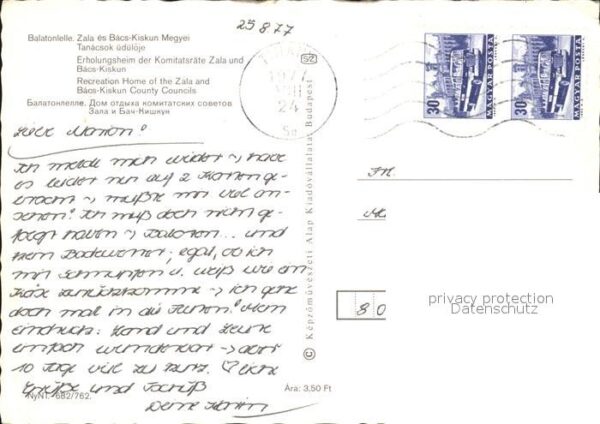 25 8 77
Balatonlelle. Zala és Bács-Kiskun Megyei
Tanácsok üdülője
Erholungsheim der Komitatsräte Zala und
Bács-Kiskun
Recreation Home of the Zala and
Bács-Kiskun County Councils
Балатонлелле. Дом отдыха комитатских советов
Зала и Бач-Кишкун
Ich melde mich wieder → habe
es leider nur auf 2 Karten ge-
mußte mir viel an-
sehen! Ich muß doch
→ Balaton... und
kein Badewetter; egal, ob ich
mit Schnupfen u. weiß wie ein
Käse zurückkomme → ich gehe
doch mal in die Fluten! Mein
Eindruck: Land und Leute
einfach wunderbar → aber
10 Tage viel zu kurz.
Grüße und
Deine
NyNT. 682/762.
Ára: 3,50 Ft
© Képzőművészeti Alap Kiadóvállalata, Budapest
1977 VIII 24
30f MAGYAR POSTA
30f MAGYAR POSTA
Fr.
8 0
privacy protection
Datenschutz